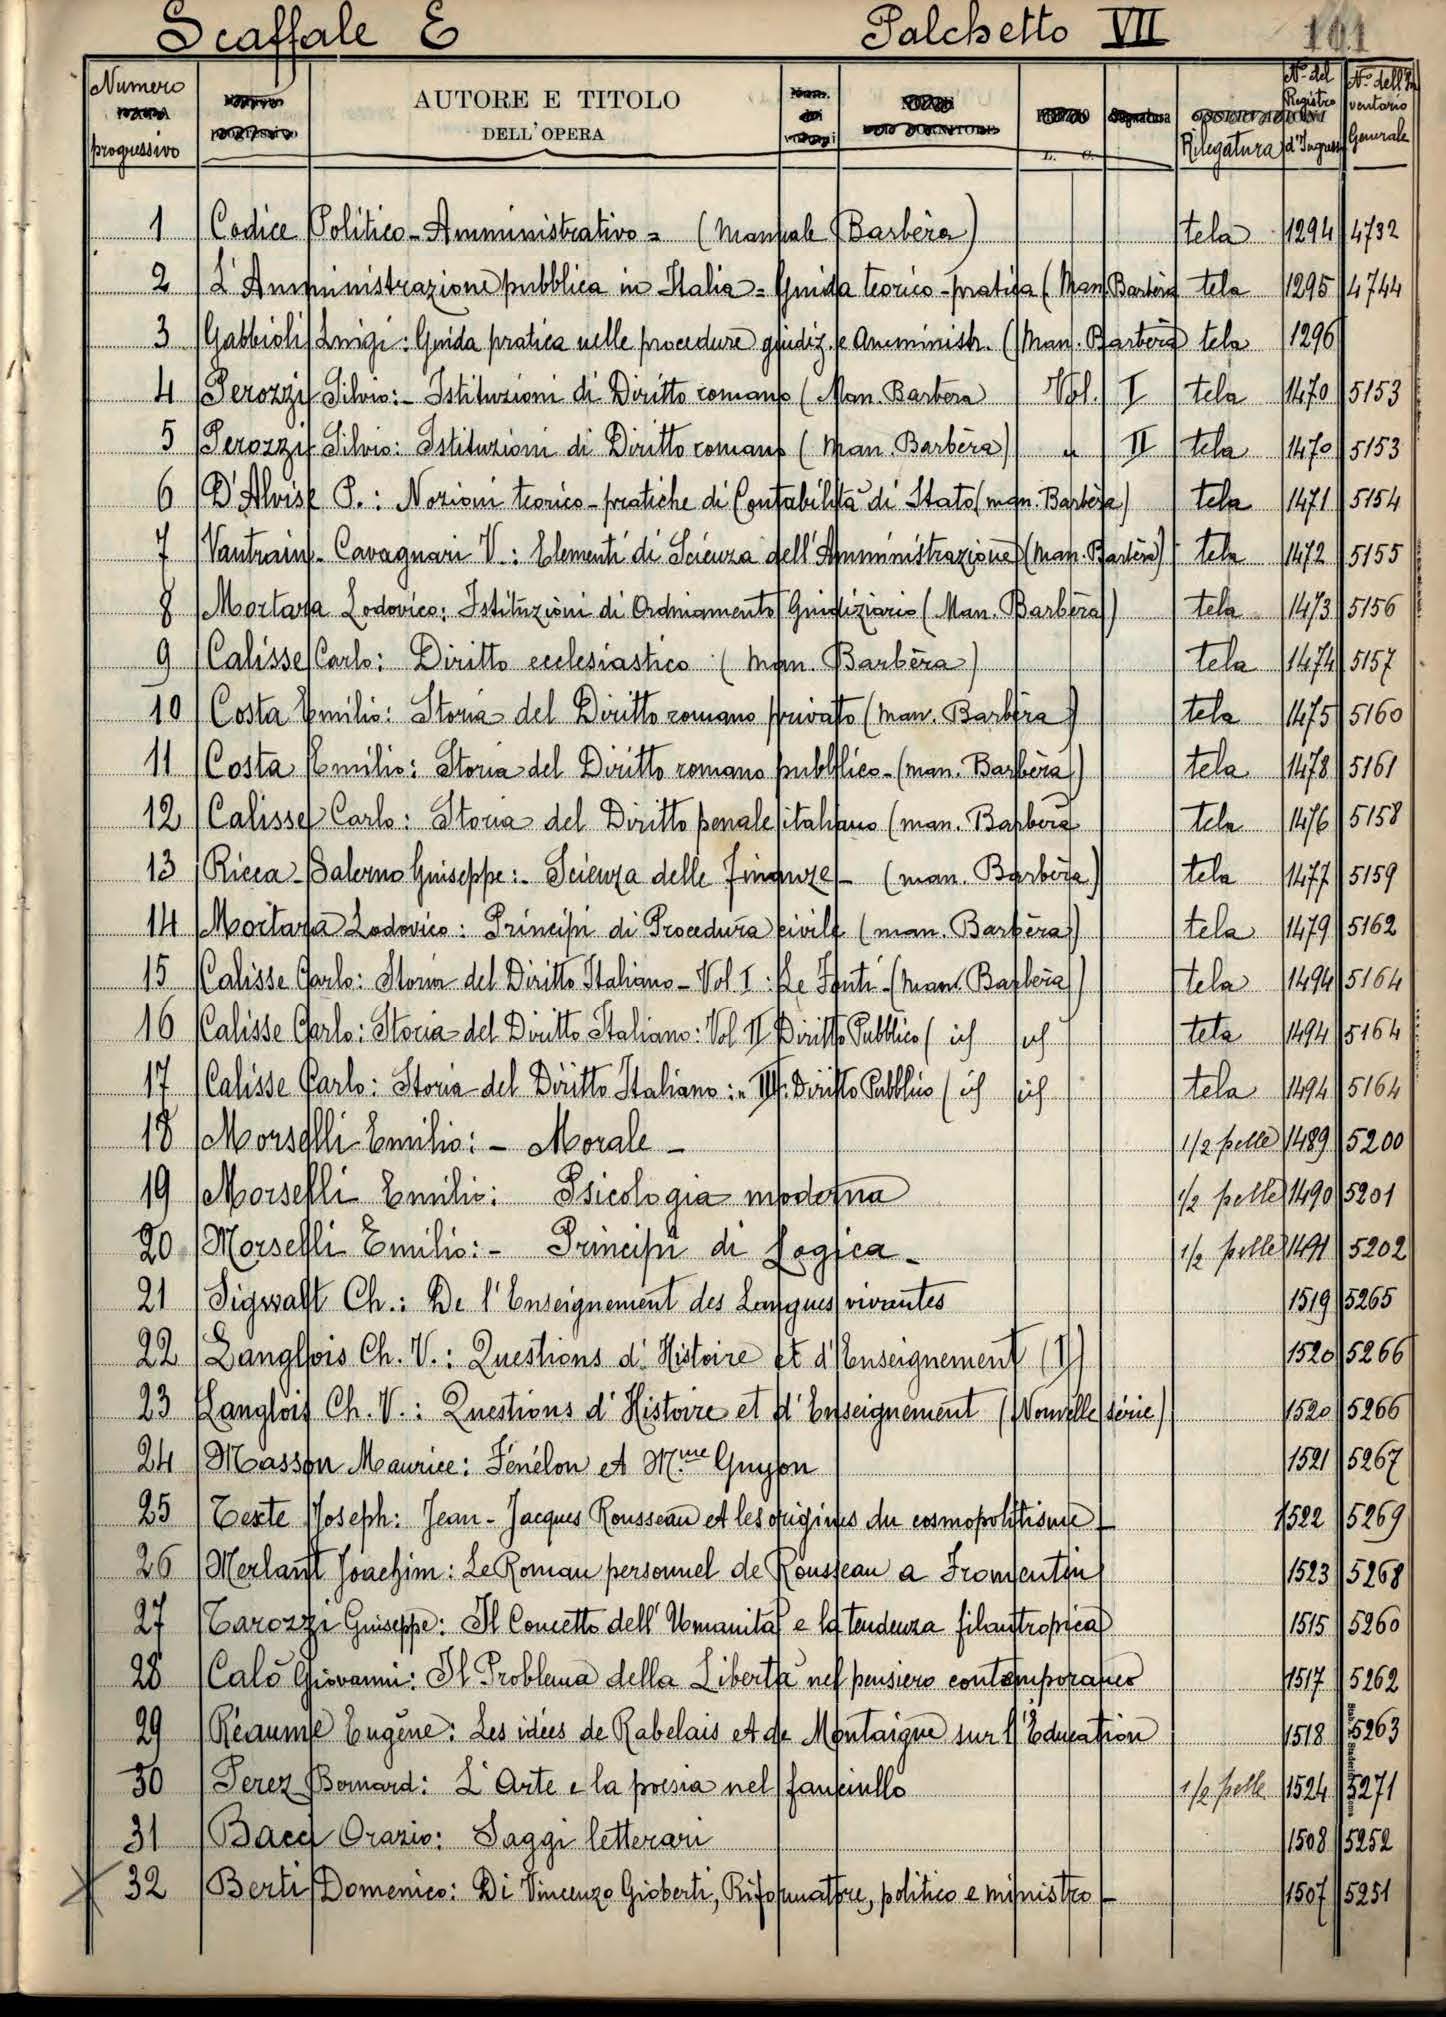 Scaffale E Palchetto VII 101
Numero progressivo AUTORE E TITOLO DELL'OPERA L. C. Rilegatura N° del Registro d'Ingresso N° dell'Inventario Generale
1 Codice Politico-Amministrativo = (Manuale Barbèra) tela 1294 4732
2 L'Amministrazione pubblica in Italia = Guida teorico-pratica (Man. Barbèra tela 1295 4744
3 Gabbioli Luigi: Guida pratica nelle procedure giudiz. e Amministr. (Man. Barbèra) tela 1296
4 Perozzi Silvio:- Istituzioni di Diritto romano (Man. Barbera) Vol. I tela 1470 5153
5 Perozzi Silvio: Istituzioni di Diritto romano (Man. Barbèra) " II tela 1470 5153
6 D'Alvise P.: Nozioni teorico-pratiche di Contabilità di Stato (man. Barbèra) tela 1471 5154
7 Vautrain-Cavagnari V.: Elementi di Scienza dell'Amministrazione (Man. Barbèra) tela 1472 5155
8 Mortara Lodovico: Istituzioni di Ordinamento Giudiziario (Man. Barbèra) tela 1473 5156
9 Calisse Carlo: Diritto ecclesiastico (Man. Barbèra) tela 1474 5157
10 Costa Emilio: Storia del Diritto romano privato (man. Barbèra) tela 1475 5160
11 Costa Emilio: Storia del Diritto romano pubblico - (man. Barbèra) tela 1478 5161
12 Calisse Carlo: Storia del Diritto penale italiano (man. Barbèra tela 1476 5158
13 Ricca-Salerno Guiseppe:- Scienza delle Finanze - (man. Barbèra) tela 1477 5159
14 Mortara Lodovico: Principi di Procedura civile (man. Barbèra) tela 1479 5162
15 Calisse Carlo: Storia del Diritto Italiano - Vol. I: Le Fonti - (Man. Barbèra) tela 1494 5164
16 Calisse Carlo: Storia del Diritto Italiano: Vol II Diritto Pubblico ( id id tela 1494 5164
17 Calisse Carlo: Storia del Diritto Italiano: " III: Diritto Pubblico ( id id tela 1494 5164
18 Morselli Emilio: - Morale - 1/2 pelle 1489 5200
19 Morselli Emilio: Psicologia moderna 1/2 pelle 1490 5201
20 Morselli Emilio: - Principi di Logica - 1/2 pelle 1491 5202
21 Sigwalt Ch.: De l'Enseignement des Langues vivantes 1519 5265
22 Langlois Ch. V.: Questions d'Histoire et d'Enseignement (I) 1520 5266
23 Langlois Ch. V.: Questions d'Histoire et d'Enseignement (Nouvelle série) 1520 5266
24 Masson Maurice: Fénélon et M.me Guyon 1521 5267
25 Texte Joseph: Jean-Jacques Rousseau et les origines du cosmopolitisme - 1522 5269
26 Merlant Joachim: Le Roman personnel de Rousseau a Fromentin 1523 5268
27 Tarozzi Giuseppe: Il Concetto dell'Umanità e la tendenza filantropica 1515 5260
28 Calò Giovanni: Il Problema della Libertà nel pensiero contemporaneo 1517 5262
29 Réaume Eugène: Les idées de Rabelais et de Montaigne sur l'Education 1518 5263
30 Perez Bernard: L'Arte e la poesia nel fanciullo 1/2 pelle 1524 5271
31 Bacci Orazio: Saggi letterari 1508 5252
32 Berti Domenico: Di Vincenzo Gioberti, Riformatore, politico e ministro - 1507 5251